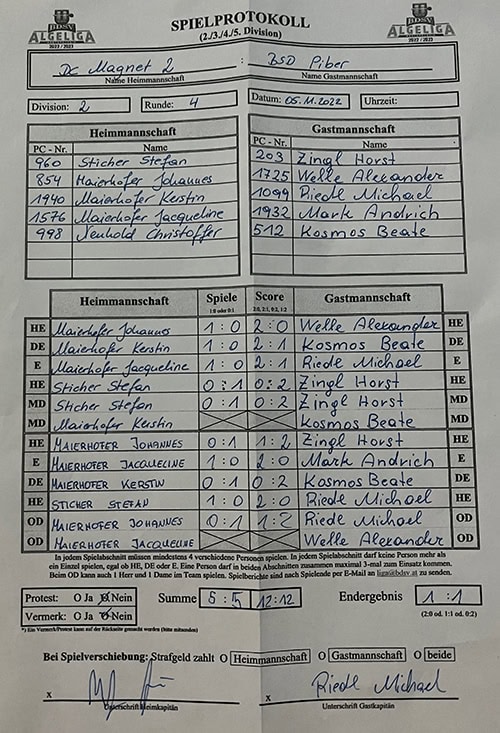 BDSV
ALGELIGA
2022/2023
SPIELPROTOKOLL
(2./3./4./5. Division)
BDSV
ALGELIGA
2022/2023
DC Magnet 2 : BSD Piber
Name Heimmannschaft Name Gastmannschaft
Division: 2 Runde: 4 Datum: 05.11.2022 Uhrzeit:
Heimmannschaft Gastmannschaft
PC - Nr. Name PC - Nr. Name
960 Sticher Stefan 203 Zingl Horst
854 Maierhofer Johannes 1725 Welle Alexander
1940 Maierhofer Kerstin 1099 Riedl Michael
1576 Maierhofer Jacqueline 1932 Mark Andrich
998 Neuhold Christoffer 512 Kosmos Beate
Heimmannschaft Spiele Score Gastmannschaft
1:0 oder 0:1 2:0, 2:1, 0:2, 1:2
HE Maierhofer Johannes 1:0 2:0 Welle Alexander HE
DE Maierhofer Kerstin 1:0 2:1 Kosmos Beate DE
E Maierhofer Jacqueline 1:0 2:1 Riedl Michael E
HE Sticher Stefan 0:1 0:2 Zingl Horst HE
MD Sticher Stefan 0:1 0:2 Zingl Horst MD
MD Maierhofer Kerstin Kosmos Beate MD
HE MAIERHOFER JOHANNES 0:1 1:2 Zingl Horst HE
E MAIERHOFER JACQUELINE 1:0 2:0 Mark Andrich E
DE MAIERHOFER KERSTIN 0:1 0:2 Kosmos Beate DE
HE STICHER STEFAN 1:0 2:0 Riedl Michael HE
OD MAIERHOFER JOHANNES 0:1 1:2 Riedl Michael OD
OD MAIERHOFER JACQUELINE Welle Alexander OD
In jedem Spielabschnitt müssen mindestens 4 verschiedene Personen spielen. In jedem Spielabschnitt darf keine Person mehr als
ein Einzel spielen, egal ob HE, DE oder E. Eine Person darf in beiden Abschnitten zusammen maximal 3-mal zum Einsatz kommen.
Beim OD kann auch 1 Herr und 1 Dame im Team spielen. Spielberichte sind nach Spielende per E-Mail an liga@bdsv.at zu senden.
Protest: O Ja O Nein Summe 5:5 12:12 Endergebnis 1:1
Vermerk: O Ja O Nein (2:0 od. 1:1 od. 0:2)
*) Ein Vermerk/Protest kann auf der Rückseite gemacht werden (bitte mitsenden)
Bei Spielverschiebung: Strafgeld zahlt O Heimmannschaft O Gastmannschaft O beide
x x Riedl Michael
Unterschrift Heimkapitän Unterschrift Gastkapitän